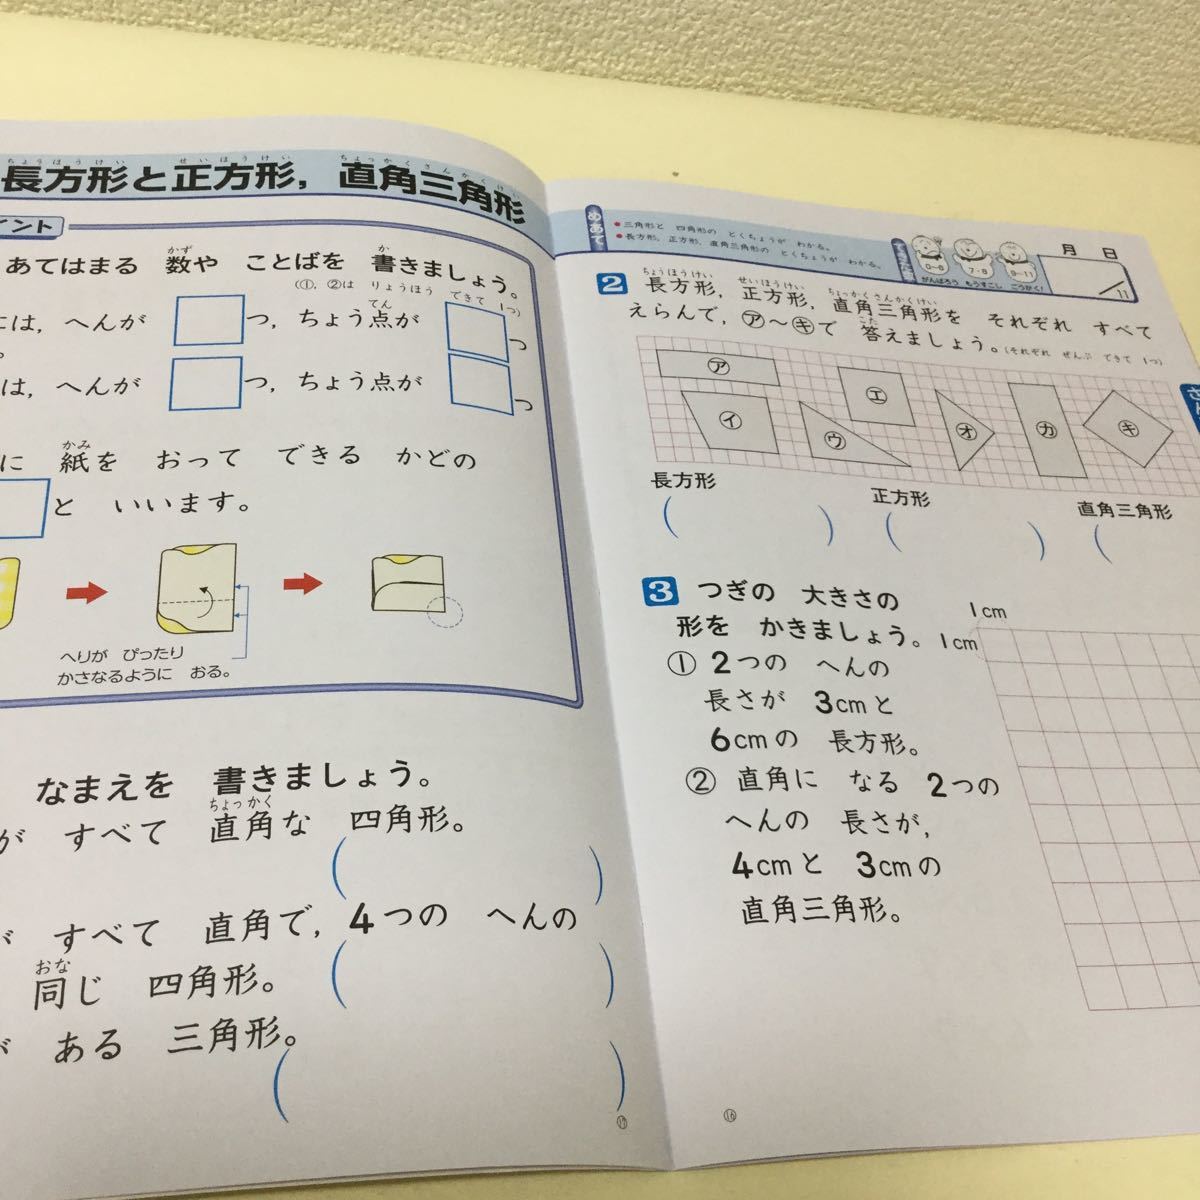 ちょうほうけい せいほうけい ちょっかくさんかくけい
長方形と正方形，直角三角形
イント
あてはまる 数や ことばを 書きましょう。
かず か
(①，②は りょうほう できて 1つ)
には，へんが つ，ちょう点が つ
てん
は，へんが つ，ちょう点が つ
に 紙を おって できる かどの
かみ
と いいます。
へりが ぴったり
かさなるように おる。
なまえを 書きましょう。
が すべて 直角な 四角形。
ちょっかく
( )
すべて 直角で，4つの へんの
同じ 四角形。
おな
( )
が ある 三角形。
( )
17
めあて
●三角形と 四角形の とくちょうが わかる。
●長方形，正方形，直角三角形の とくちょうが わかる。
0-6 7・8 9-11
がんばろう もうすこし ごうかく!
月 日
/11
2 長方形，正方形，直角三角形を それぞれ すべて
ちょうほうけい せいほうけい ちょっかくさんかくけい
えらんで，㋐〜㋖で 答えましょう。(それぞれ ぜんぶ できて 1つ)
こた
㋐ ㋑ ㋒ ㋓ ㋔ ㋕ ㋖
長方形 正方形 直角三角形
( ) ( ) (
3 つぎの 大きさの
形を かきましょう。
1cm
1cm
① 2つの へんの
長さが 3cmと
6cmの 長方形。
② 直角に なる 2つの
へんの 長さが，
4cmと 3cmの
直角三角形。
16